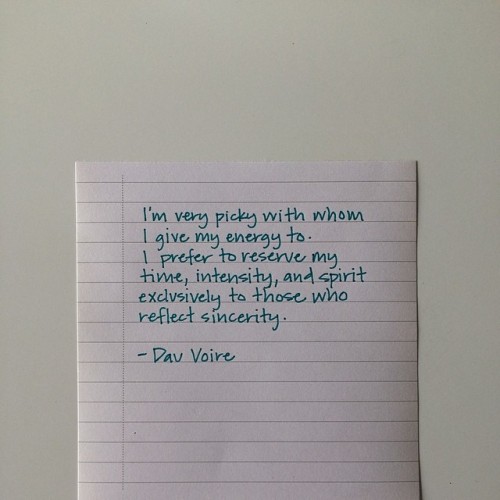 I'm very picky with whom
I give my energy to.
I prefer to reserve my
time, intensity, and spirit
exclusively to those who
reflect sincerity.
- Dau Voire